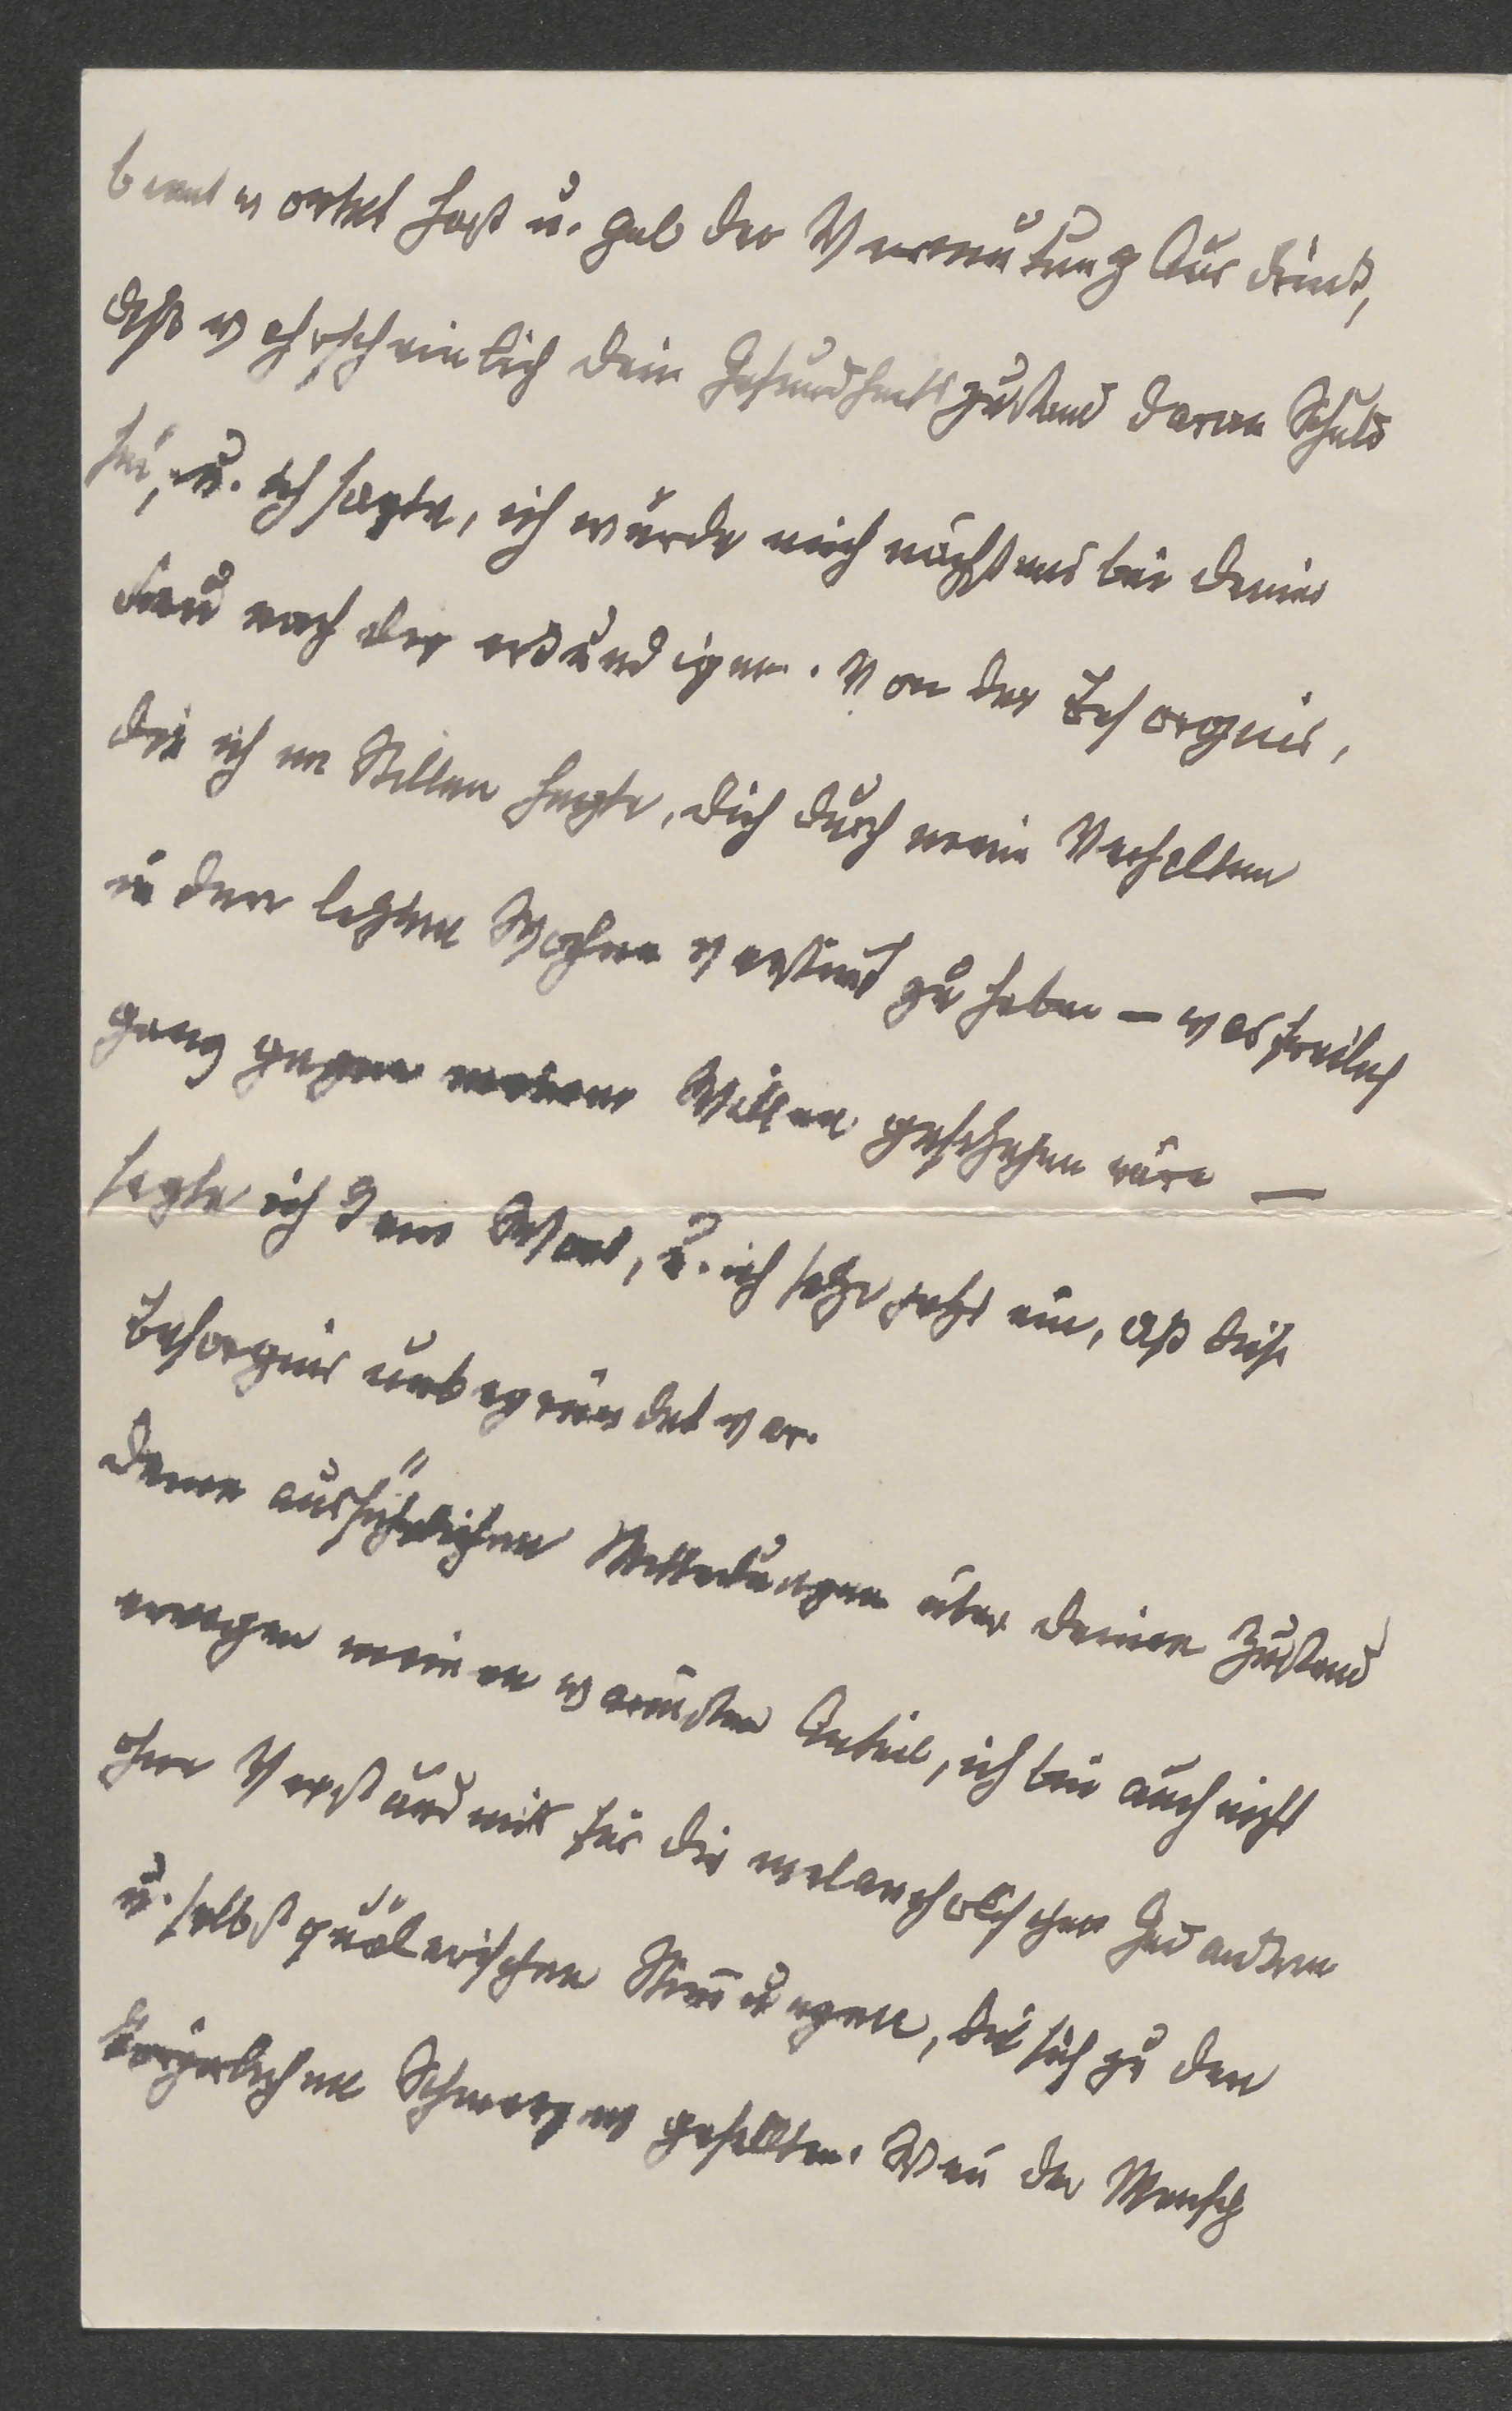 beantwortet hast u. gab der Vermutung Ausdruck,
daß wahrscheinlich Dein Gesundheitszustand daran Schuld
sei, u. ich sagte, ich würde mich nächstens bei Deiner
Frau nach Dir erkundigen. Von der Besorgnis,
die ich im Stillen hegte, Dich durch mein Verhalten
in den letzten Wochen verstimmt zu haben – was freilich
ganz gegen meinen Willen geschehen wäre –
sagte ich kein Wort, u. ich sehe jetzt ein, daß diese
Besorgnis unbegründet war.
Deine ausführlichen Mitteilungen über Deinen Zustand
erregen meinen wärmsten Anteil, ich bin auch nicht
ohne Verständnis für die melancholischen Gedanken
u. selbstquälerischen Stimmungen, die sich zu den
körperlichen Schmerzen gesellten. Wenn der Mensch